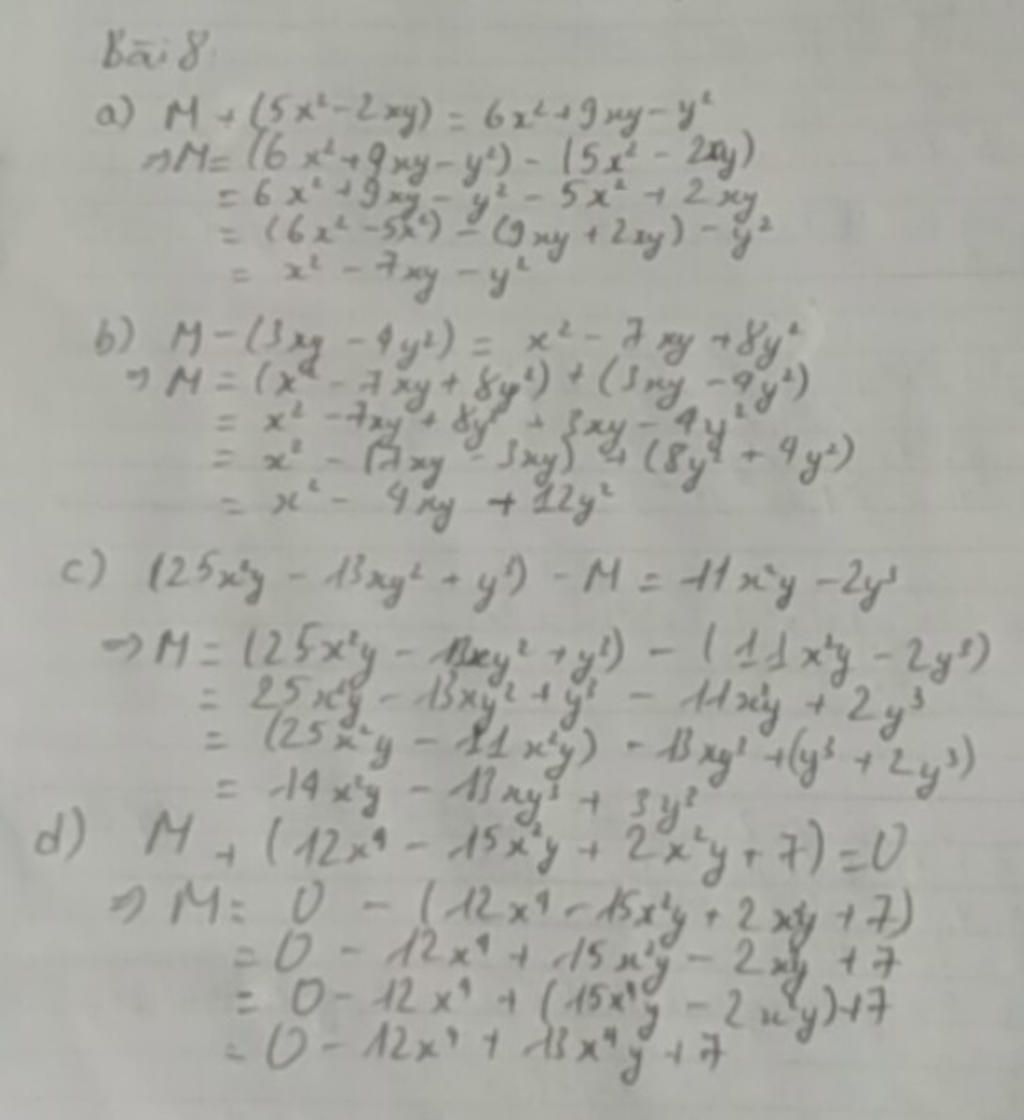 Bài 8
a) M + (5x² - 2xy) = 6x² + 9xy - y²
⇒ M = (6x² + 9xy - y²) - (5x² - 2xy)
= 6x² + 9xy - y² - 5x² + 2xy
= (6x² - 5x²) - (9xy + 2xy) - y²
= x² - 7xy - y²
b) M - (3xy - 4y²) = x² - 7xy + 8y²
⇒ M = (x² - 7xy + 8y²) + (3xy - 4y²)
= x² - 7xy + 8y² + 3xy - 4y²
= x² - (7xy - 3xy) + (8y² + 4y²)
= x² - 4xy + 12y²
c) (25x²y - 13xy² + y³) - M = 11x²y - 2y³
⇒ M = (25x²y - 13xy² + y³) - (11x²y - 2y³)
= 25x²y - 13xy² + y³ - 11x²y + 2y³
= (25x²y - 11x²y) - 13xy² + (y³ + 2y³)
= 14x²y - 13xy² + 3y³
d) M + (12x⁴ - 15x²y + 2x²y + 7) = 0
⇒ M = 0 - (12x⁴ - 15x²y + 2x²y + 7)
= 0 - 12x⁴ + 15x²y - 2x²y + 7
= 0 - 12x⁴ + (15x⁴y - 2x²y) + 7
= 0 - 12x⁴ + 13x⁴y + 7